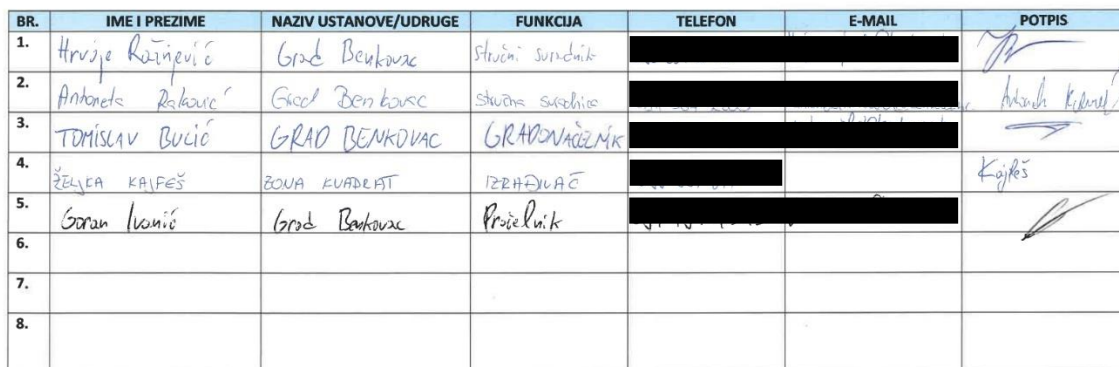 BR. IME I PREZIME NAZIV USTANOVE/UDRUGE FUNKCIJA TELEFON E-MAIL POTPIS
1. Hrvoje Ražnjević Grad Benkovac stručni suradnik
2. Antoneta Grad Benkovac stručna suradnica
3. TOMISLAV BULIĆ GRAD BENKOVAC GRADONAČELNIK
4. ŽELJKA KAJFEŠ ZONA KVADRAT IZRAĐIVAČ Kajfeš
5. Goran Ivanić Grad Benkovac Pročelnik
6.
7.
8.